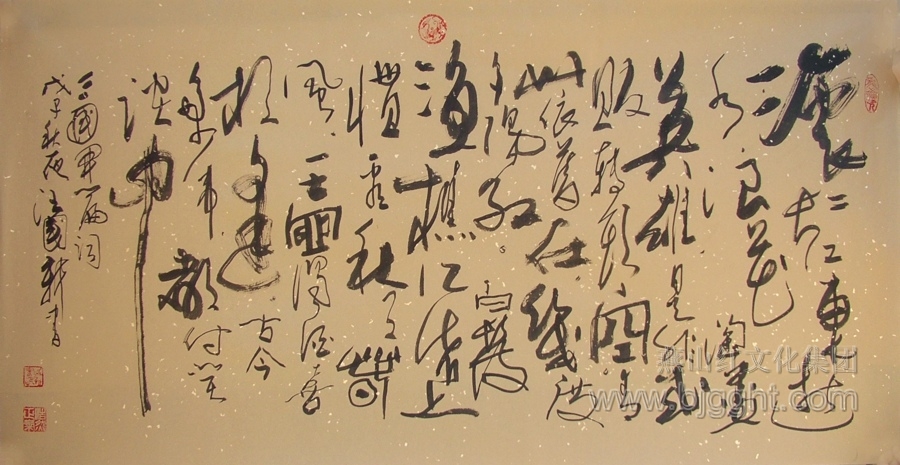 滚滚长江东逝
水浪花淘尽
英雄是非成
败转头空青
山依旧在几度
夕阳红白发
渔樵江渚上
惯看秋月春
风一壶浊酒喜
相逢古今
多少事都付笑
谈中
三国开篇词
戊子秋夜汪国新书
文化集团
www.bjgght.com